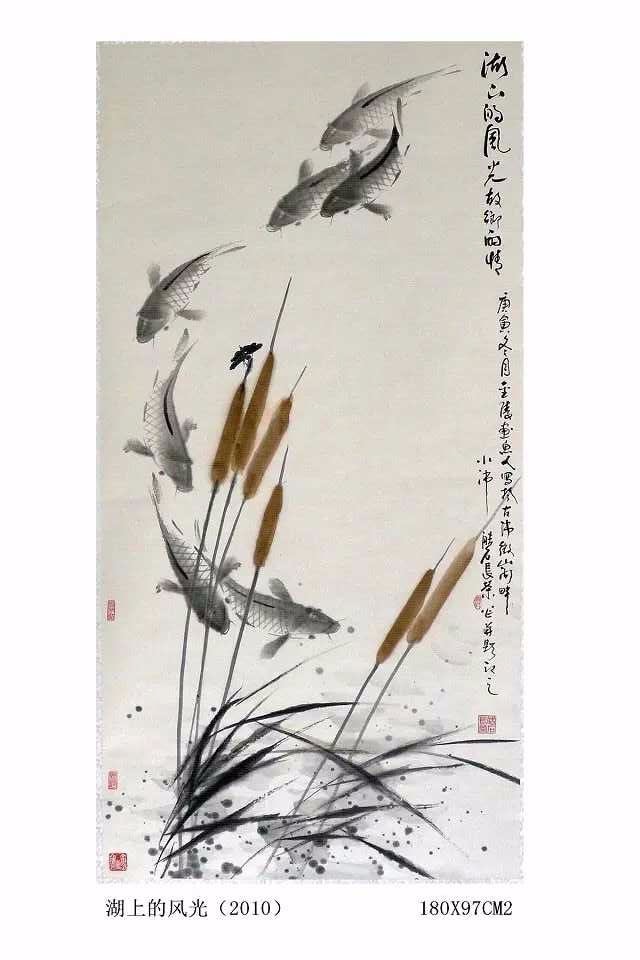 湖上的風光故鄉的情
庚寅冬月金陵畫魚人寫於古沛微山湖畔
小沛
湖上的风光（2010）
180X97CM2